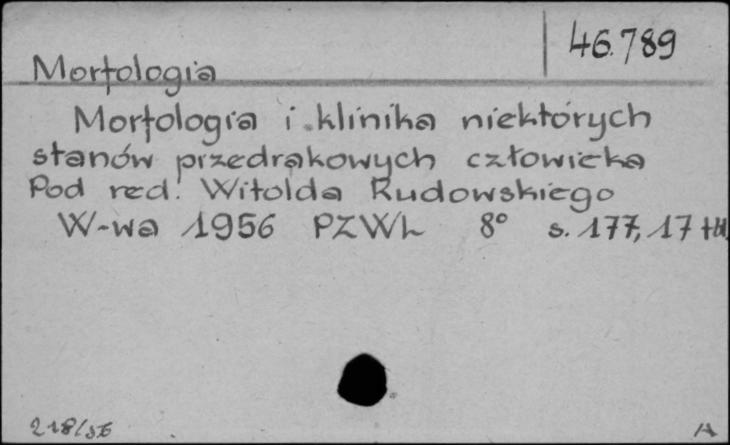 46.789
Morfologia
Morfologia i klinika niektórych
stanów przedrakowych człowieka
Pod red. Witolda Rudowskiego
W-wa 1956 PZWL 8° s. 177, 17 tbl.
218/56
A